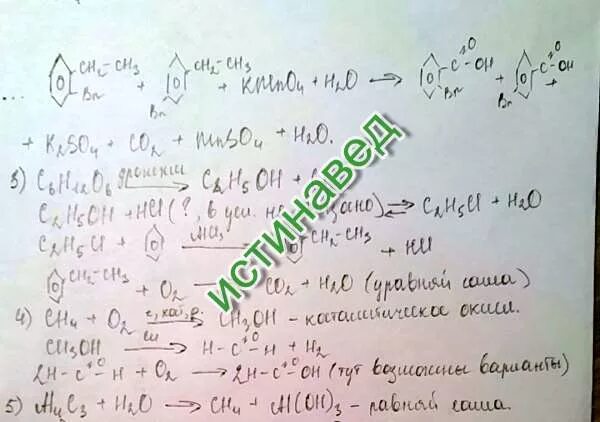 CH2-CH3 CH2-CH3 C=O OH C=O OH
... Br + Br + KMnO4 + H2O → Br + Br +
+ K2SO4 + CO2 + MnSO4 + H2O.
3) C6H12O6 → C2H5OH +
C2H5OH + HCl (?, в усл. не ) ⇌ C2H5Cl + H2O
C2H5Cl + → CH2-CH3 + HCl
CH2-CH3 + O2 → CO2 + H2O (уравняй сама)
4) CH4 + O2 → CH3OH - каталитическое окисл.
CH3OH → H-C=O-H + H2
2H-C=O-H + O2 → 2H-C=O OH (тут возможны варианты)
5) Al4C3 + H2O → CH4 + Al(OH)3 - равняй сама.
ИСТИНАВЕД